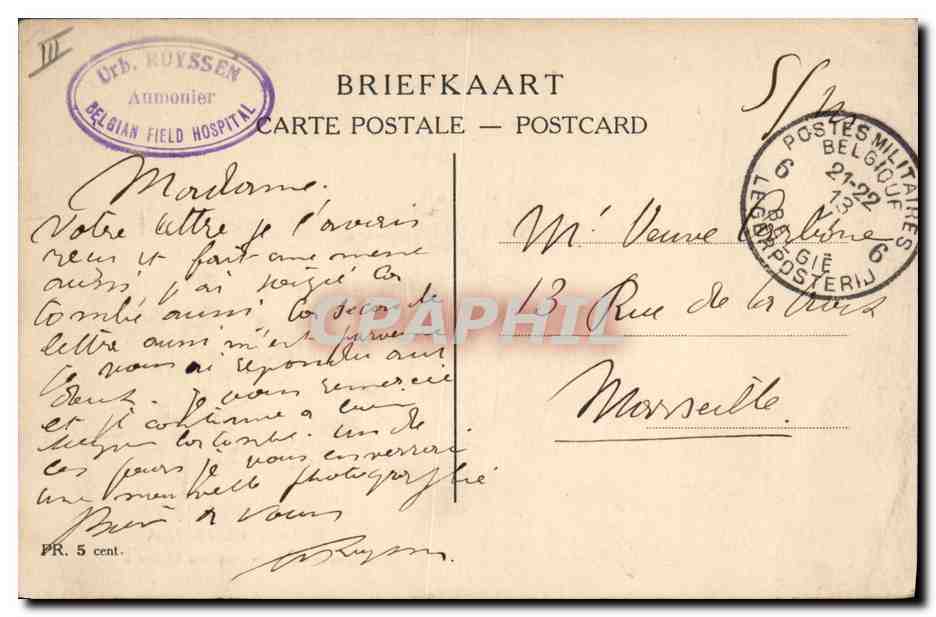 III
Urb. RUYSSEN
Aumonier
BELGIAN FIELD HOSPITAL
BRIEFKAART
CARTE POSTALE — POSTCARD
S/M
POSTES MILITAIRES
BELGIQUE
21-22
13
BELGIË
LEGERPOSTERIJ
6 6
Madame.
Votre lettre je l'avais
reçu et fait
aussi j'ai soigné la
tombe aussi la seconde
lettre aussi m'est parvenue
je vous ai répondu aux
deux. je vous remercie
et je continue a bien
soigner la tombe. un de
ces jours je vous enverrai
une nouvelle photographie
Bien à vous
Ruyssen
PR. 5 cent.
Mme Veuve
13 Rue de la
Marseille.
CPAPHIL